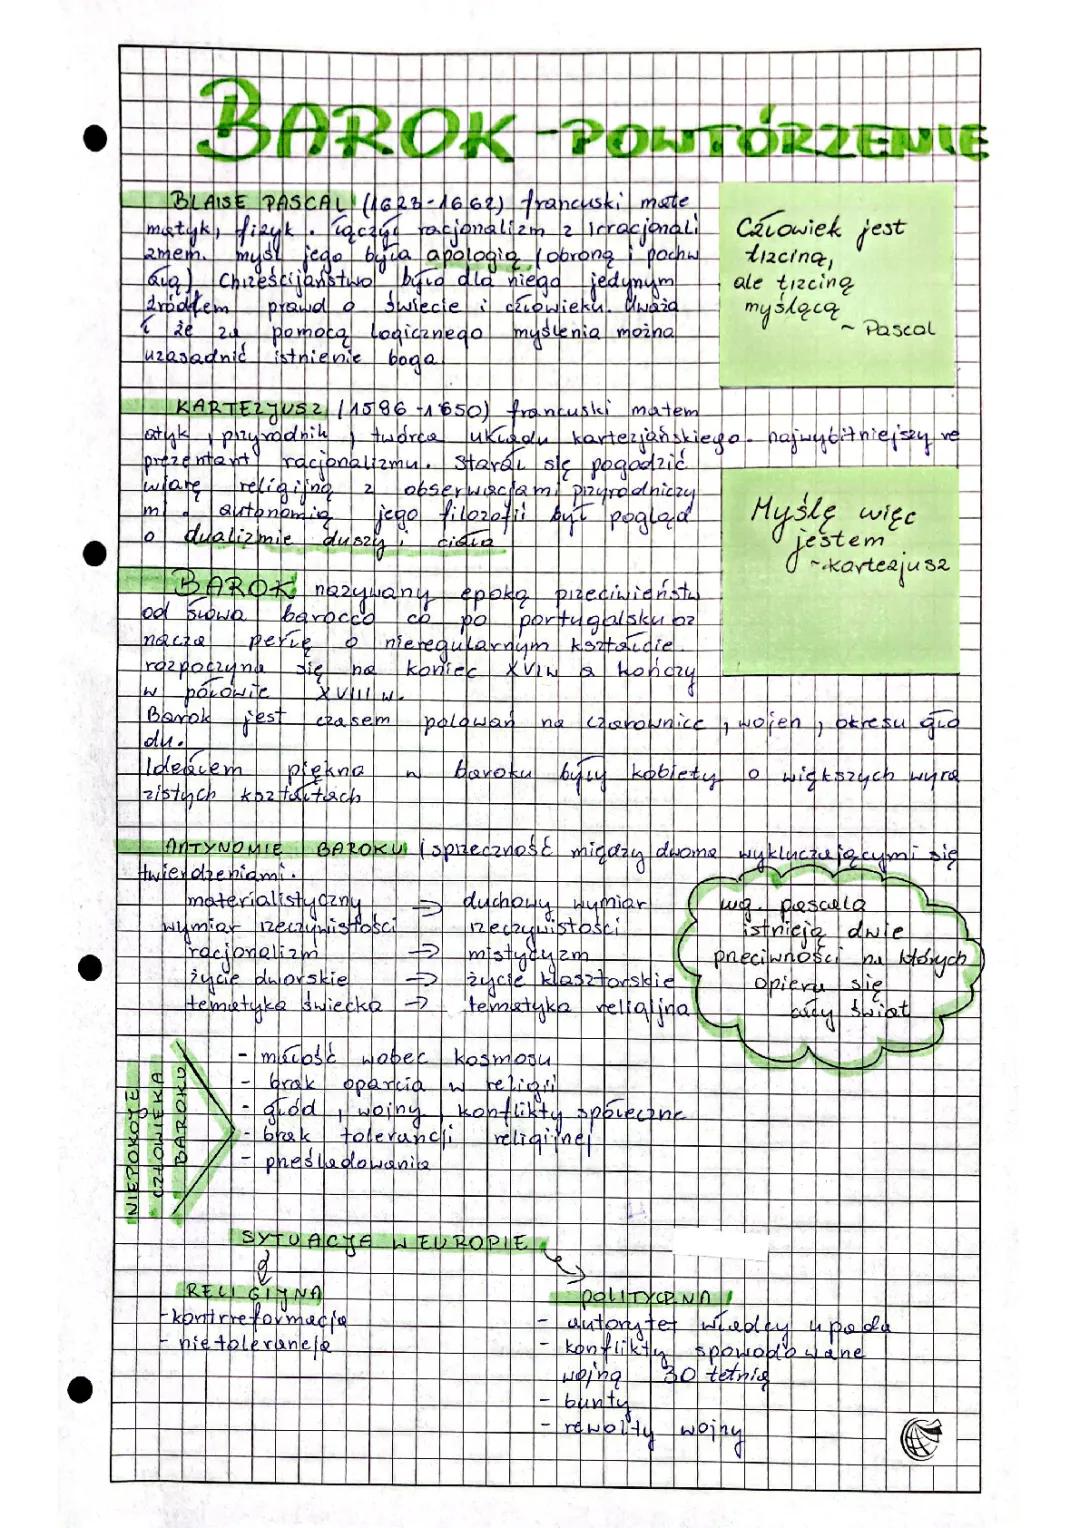 BAROK - POWTÓRZENIE
BLAISE PASCAL (1623-1662) francuski mate
matyk, fizyk. łączył racjonalizm z irracjonali
zmem. myśl jego była apologią (obroną i pochw
ałą). Chrześcijaństwo było dla niego jedynym
źródłem prawd o świecie i człowieku. Uważa
ł że za pomocą logicznego myślenia można
uzasadnić istnienie boga
Człowiek jest
trzciną,
ale trzciną
myślącą
~ Pascal
KARTEZJUSZ (1596-1650) francuski matem
atyk, przyrodnik, twórca układu kartezjańskiego. najwybitniejszy re
prezentant racjonalizmu. Starał się pogodzić
wiarę religijną z obserwacjami przyrodniczy
mi. autonomią jego filozofii był pogląd
o dualizmie duszy i ciała
Myślę więc
jestem
~kartezjusz
BAROK nazywany epoką przeciwieństw
od słowa barocco co po portugalsku oz
nacza perłę o nieregularnym kształcie.
rozpoczyna się na koniec XVIw a kończy
w połowie XVIII w.
Barok jest czasem polowań na czarownice, wojen, okresu gło
du.
Ideałem piękna w baroku były kobiety o większych wyra
zistych kształtach
ANTYNOMIE BAROKU (sprzeczność między dwoma wykluczającymi się
twierdzeniami.
materialistyczny → duchowy wymiar
wymiar rzeczywistości rzeczywistości
racjonalizm → mistycyzm
życie dworskie → życie klasztorskie
tematyka świecka → tematyka religijna
wg. pascala
istnieją dwie
przeciwności na których
opiera się
cały świat
NIEPOKOJE
CZŁOWIEKA
BAROKU
- małość wobec kosmosu
- brak oparcia w religii
- głód, wojny, konflikty społeczne
- brak tolerancji religijnej
- prześladowania
SYTUACJA W EUROPIE
RELIGIJNA
- kontrreformacja
- nietolerancja
POLITYCZNA
- autorytet władcy upada
- konflikty spowodowane
wojną 30 letnią
- bunty
- rewolty wojny